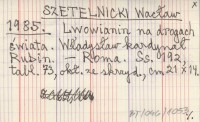 SZETELNICKI Wacław
1985. Lwowianin na drogach
świata. Władysław kardynał
Rubin. — Roma. Ss. 192,
tabl. 73, okł. ze skrzyd, cm 21 x 14.